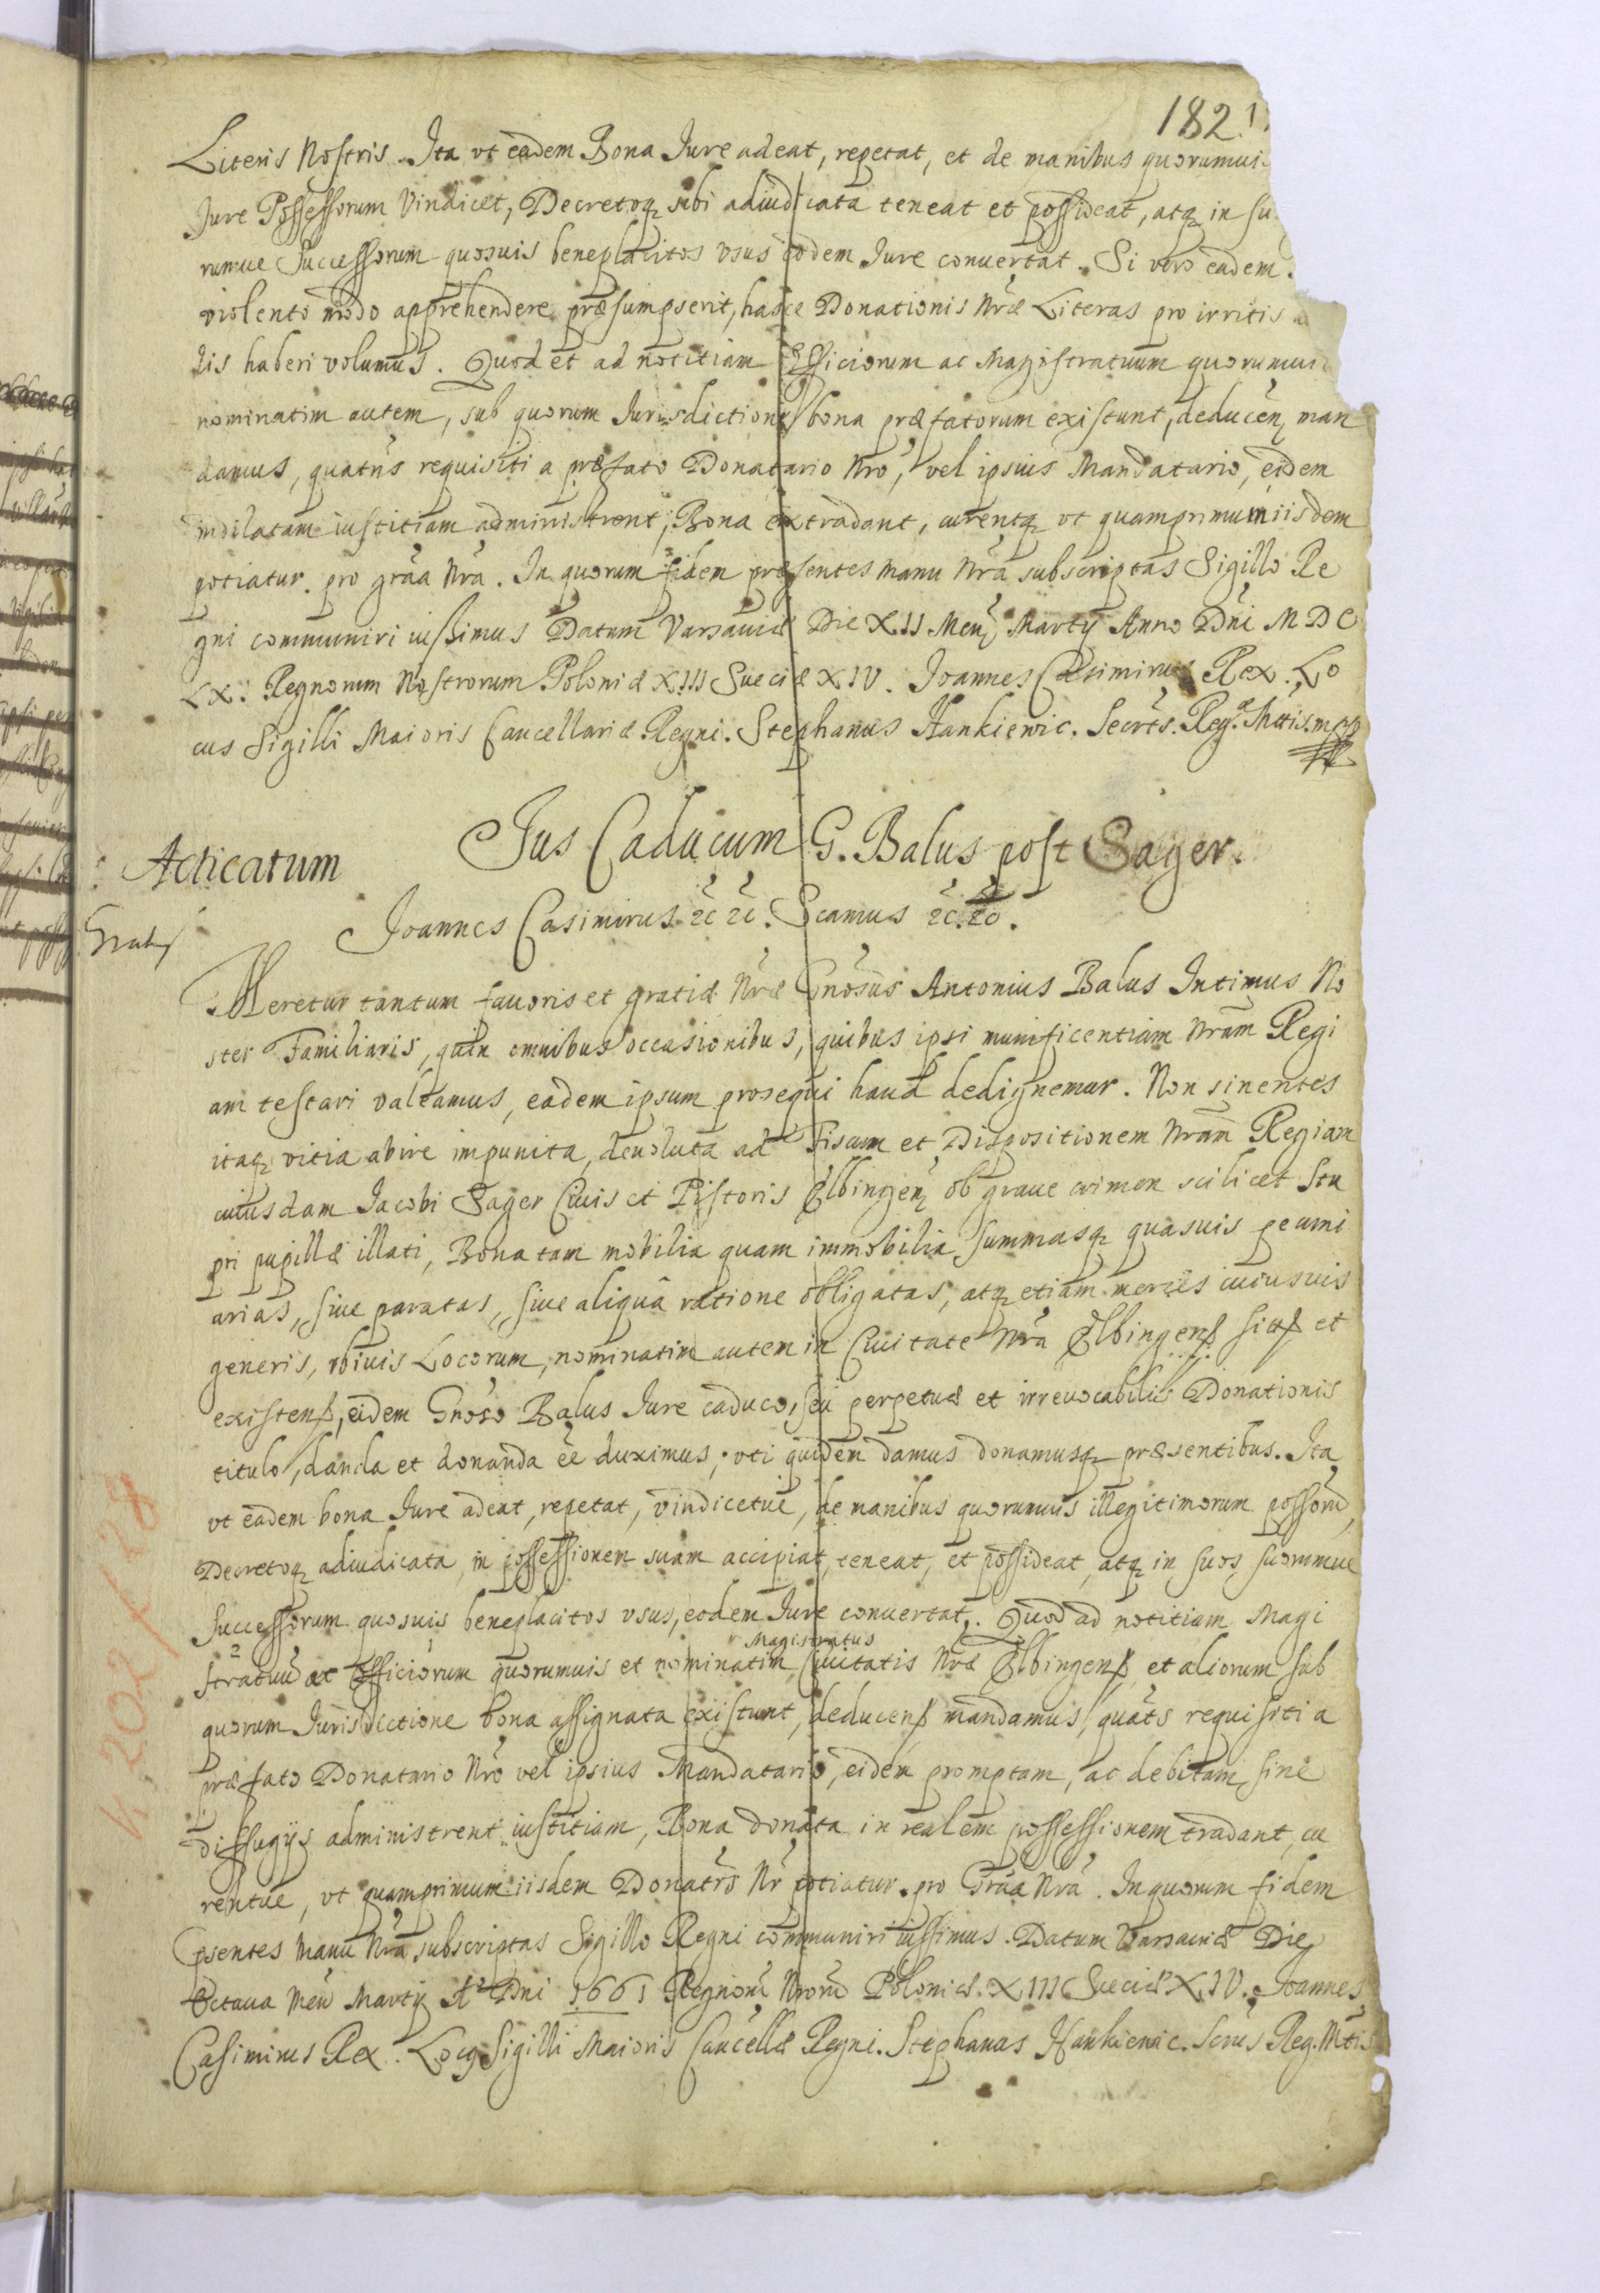 182.
Literis Nostris. Ita vt eadem Bona Jure adeat, repetat, et de manibus quorumuis
Jure Possessorum Vindicet, Decretoq sibi adiudicata teneat et possideat, atq in su
rumue Successorum quosuis beneplacitos vsus eodem Jure conuertat. Si vero eadem
violento modo apprehendere præsumpserit, hasce Donationis Nræ Literas pro irritis
lis haberi volumus. Quod et ad notitiam Officiorum ac Magistratuum quorumuis
nominatim autem, sub quorum Jurisdictione bona præfatorum existunt, deducen man
damus, quatns requisiti a præfato Donatario Nro, vel ipsius Mandatario, eidem
indilatam iustitiam administrent, Bona extradant, curentq vt quamprimum iisdem
potiatur. pro graa Nra. In quorum fidem præsentes manu Nra subscriptas Sigillo Re
gni communiri iussimus Datum Varsauiæ Die XII Mens Martij Anno Dni M DC
LX. Regnorum Nostrorum Poloniæ XIII Sueciæ XIV. Joannes Casimirus Rex. Lo
cus Sigilli Maioris Cancellariæ Regni. Stephanus Hankiewic. Secrets. Reg. Mttis. mpp
Jus Caducum G. Balus post Sager.
Acticatum
Joannes Casimirus ꝛc ꝛc. Scamus ꝛc. ꝛc.
Meretur tantum fauoris et gratiæ Nræ Gnosus Antonius Balus Intimus No
ster Familiaris, quin omnibus occasionibus, quibus ipsi munificentiam Nram Regi
am testari valeamus, eadem ipsum prosequi haud dedignemur. Non sinentes
itaq vitia abire impunita, deuoluta ad Fiscum et Dispositionem Nram Regiam
cuiusdam Jacobi Sager Ciuis et Pistoris Elbingen ob graue crimen scilicet Stu
pri pupillæ illati, Bona tam mobilia quam immobilia, summasq quasuis pecuni
arias, siue paratas, siue aliqua ratione obligatas, atq etiam merces cuiusuis
generis, vbiuis Locorum, nominatim autem in Ciuitate Nra Elbingens sita et
existens, eidem Gnoso Balus Jure caduco, seu perpetuæ et irreuocabilis Donationis
titulo, danda et donanda ee duximus; vti quidem damus donamusq præsentibus. Ita
vt eadem bona Jure adeat, repetat, vindicetue, de manibus quorumuis illegitimorum possoru,
Decretoq adiudicata, in possessionem suam accipiat, teneat, et possideat, atq in suos suorumue
Successorum quosuis beneplacitos vsus, eodem Jure conuertat. Quod ad notitiam Magi
Magistratus
stratuu ac Officiorum quorumuis et nominatim Ciuitatis Nræ Elbingens, et aliorum sub
quorum Jurisdictione bona assignata existunt, deducens mandamus, quats requisiti a
præfato Donatario Nro vel ipsius Mandatario, eidem promptam, ac debitam, sine
diffugijs administrent iustitiam, Bona donata in realem possessionem tradant, cu
rentue, vt quamprimum iisdem Donatrs Nr potiatur. pro Graa Nra. In quorum fidem
psentes Manu Nra subscriptas Sigillo Regni communiri iussimus. Datum Varsauiæ Die
Octaua Men Martij Ao Dni 1661 Regnoru Nroru Poloniæ. XIII Sueciæ XIV. Joannes
Casimirus Rex. Locq Sigilli Maioris Cancellæ Regni. Stephanus Hankiewic. Scrus Reg. Mtis